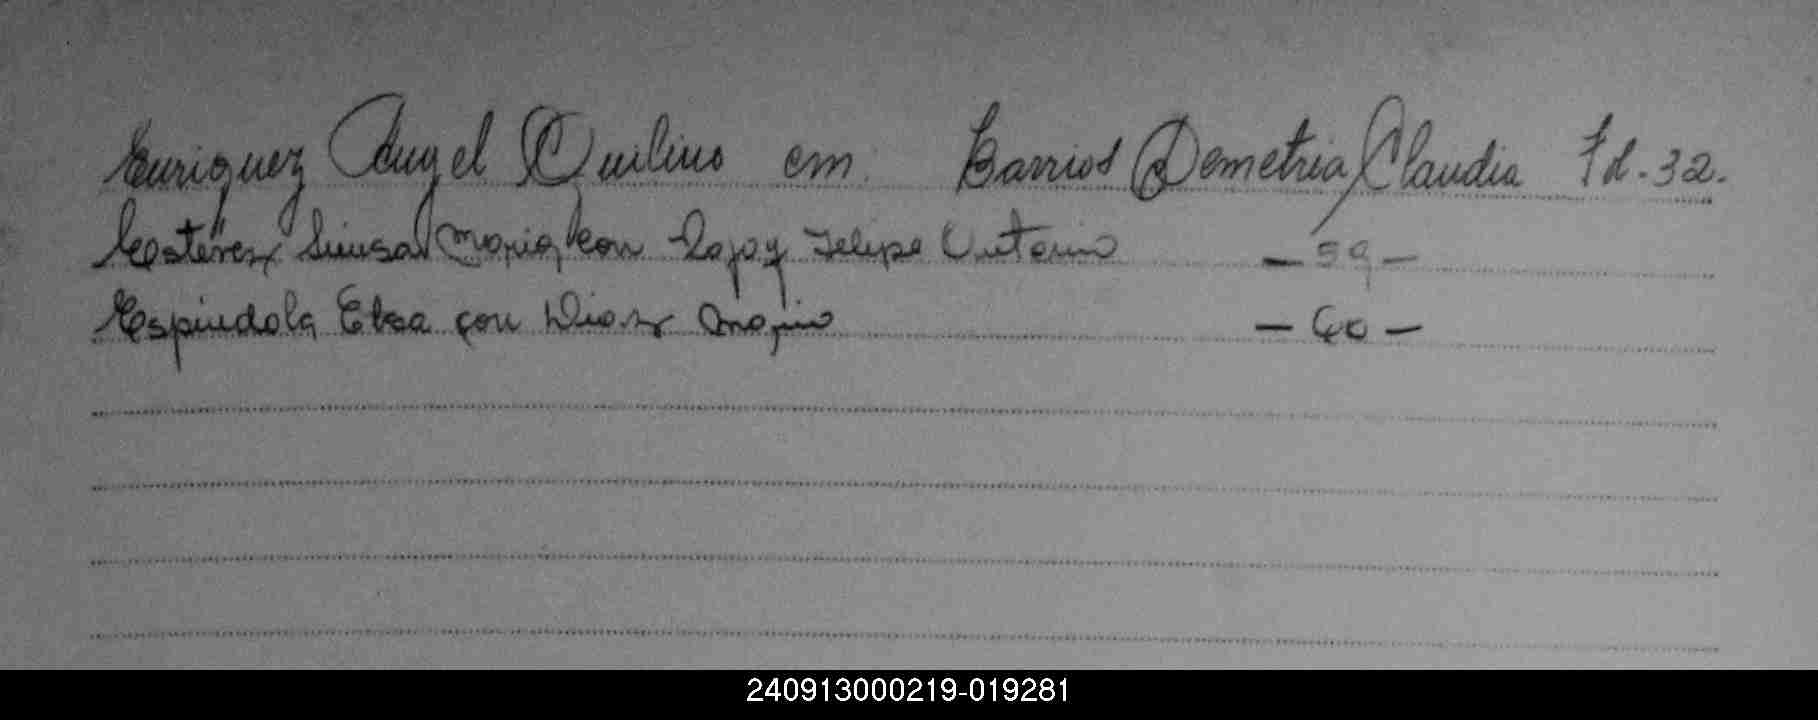 Enriquez Angel Quilino em Barrios Demetria Claudia Fd. 32.
Maria con Felipe Antonio — 59 —
Espindola Elsa con Diaz Mario — 60 —
240913000219-019281